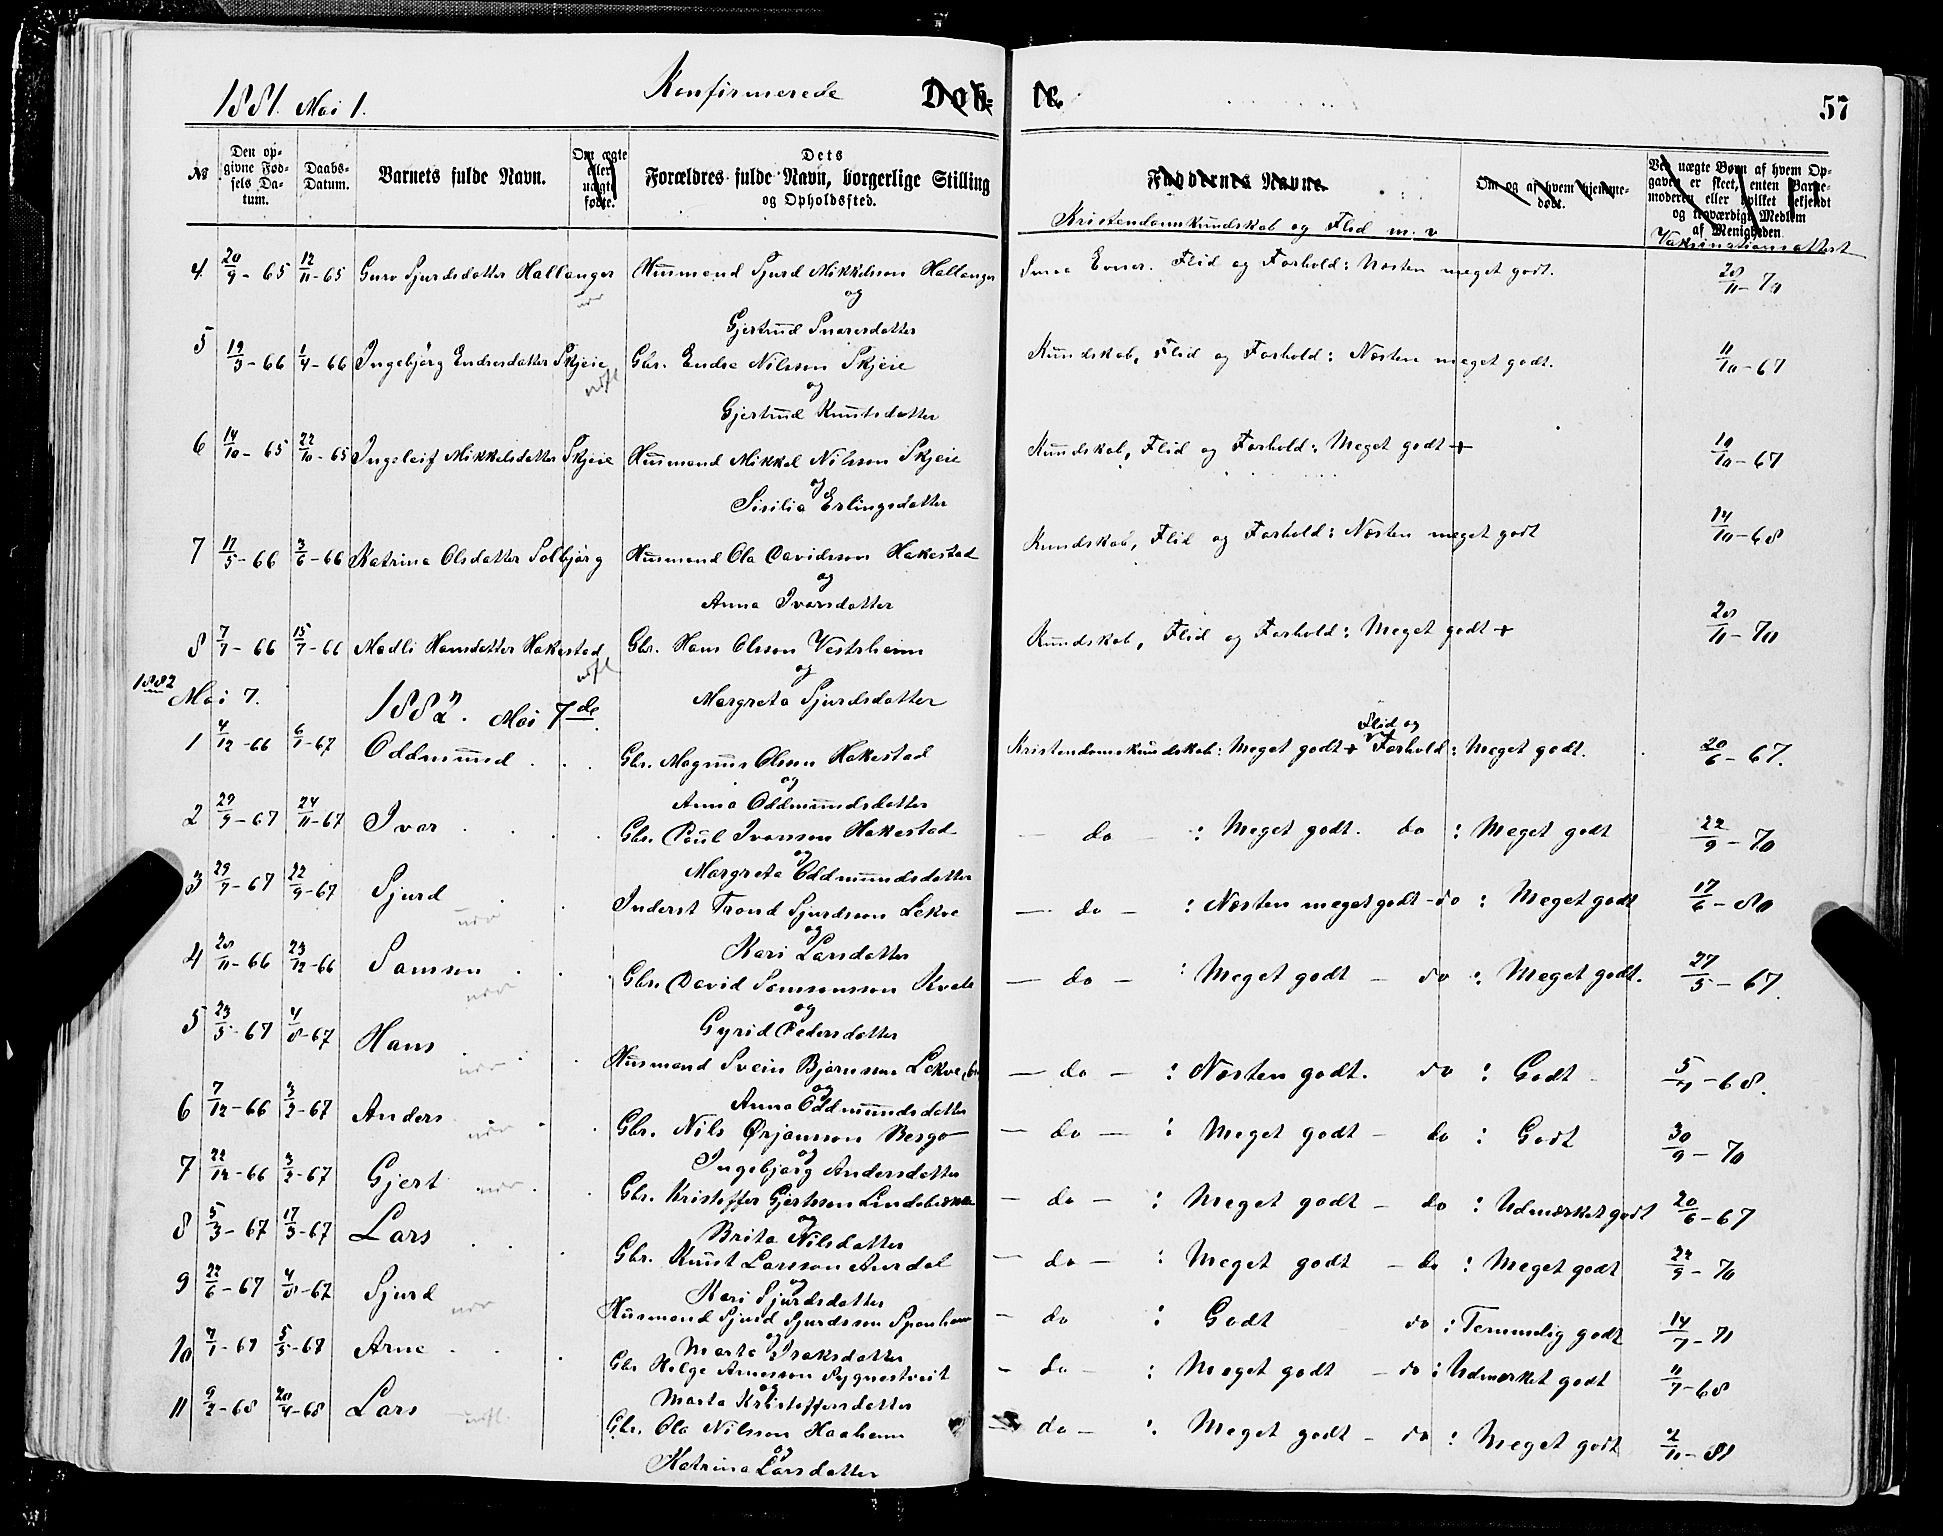 1881. Mai 1.
Konfirmerede
Dob- te.
57
№
Den op-
givne Fød-
sels Da-
tum.
Daabs-
Datum.
Barnets fulde Navn.
Om ægte
eller
uægte
født.
Dets
Forældres fulde Navn, borgerlige Stilling
og Opholdssted.
Faddernes Navne.
Kristendomskundskab og Flid m. v
Om og af hvem hjemme-
døbt.
Ved uægte Børn af hvem Op-
gaven er skeet, enten Barne-
moderen eller hvilket bekjendt
og troværdigt Medlem
af Menigheden
Vaksinationsattest
4 20/9 - 65 12/11 - 65 Guro Sjurdsdatter Hallanger Husmand Sjurd Mikkelsson Hallanger Smaa Evner. Flid og Forhold: Næsten meget godt. 28/11 - 70
og
Gjertrud Snaresdatter
5 19/3 - 66 1/4 - 66 Ingebjørg Endresdatter Skjeie Gbr. Endre Nilsson Skjeie Kundskab, Flid og Forhold: Næsten meget godt. 11/10 - 67
og
Gjertrud Knutsdatter
6 14/10 - 65 22/10 - 65 Ingeleif Mikkelsdatter Skjeie Husmand Mikkel Nilsson Skjeie Kundskab, Flid og Forhold: Meget godt + 10/10 - 67
og
Sisilia Erlingsdatter
7 17/5 - 66 3/6 - 66 Katrina Olsdatter Solbjørg Husmand Ola Davidsson Hakestad Kundskab, Flid og Forhold: Næsten meget godt 14/10 - 68
og
Anna Ivarsdatter
8 7/7 - 66 15/7 - 66 Madli Hansdatter Hakestad Gbr. Hans Olsson Vestrheim Kundskab, Flid og Forhold: Meget godt + 28/11 - 70
og
Margreta Sjurdsdatter
1882
Mai 7. 1882. Mai 7de.
1 4/12 - 66 6/1 - 67 Oddmund Gbr. Magnus Olsson Hakestad Kristendomskundskab: Meget godt + Flid og Forhold: Meget godt. 20/6 - 67.
og
Anna Oddmundsdatter
2 29/9 - 67 24/11 - 67 Ivar Gbr. Poul Ivarsson Hakestad — do — : Meget godt. do : Meget godt 22/9 - 70
og
Margreta Oddmundsdatter
3 29/7 - 67 22/9 - 67 Sjurd Inderst Trond Sjurdsson Lekve — do — : Næsten meget godt - do : Meget godt 17/6 - 80
og
Kari Larsdatter
4 28/11 - 66 23/12 - 66 Samson Gbr. David Samsonsson Kvale — do — : Meget godt — do : Meget godt. 27/5 - 67.
og
Gyrid Pedersdatter
5 23/5 - 67 4/8 - 67 Hans Husmand Svein Bjørnsson Lekve — do — : Næsten godt. do : Godt 5/7 - 68.
og
Anna Oddmundsdatter
6 7/12 - 66 3/2 - 67 Anders Gbr. Nils Ørjansson Bergo — do — : Meget godt — do : Godt 30/9 - 70
og
Ingebjørg Andersdatter
7 22/12 - 66 3/2 - 67 Gjert Gbr. Kristoffer Gjertsson Lindebrekke — do — : Meget godt — do : Udmærket godt 20/6 - 67
og
Brita Nilsdatter
8 5/3 - 67 17/3 - 67 Lars Gbr. Knut Larsson Aurdal — do — : Meget godt — do : Meget godt 22/9 - 70
og
Kari Sjurdsdatter
9 22/6 - 67 4/8 - 67 Sjurd Husmand Sjurd Sjurdsson Spaanheim — do : Godt do : Temmelig godt 14/7 - 71
og
Marta Isaksdatter
10 7/1 - 67 5/5 - 67 Arne Gbr. Helge Arnesson Sygnestveit - do - : Meget godt — do : Udmærket godt 11/7 - 68
og
Marta Kristoffersdatter
11 9/2 - 68 20/4 - 68 Lars Gbr. Ola Nilsson Haaheim — do — : Meget godt — do : Meget godt 2/10 - 81
og
Katrina Larsdatter